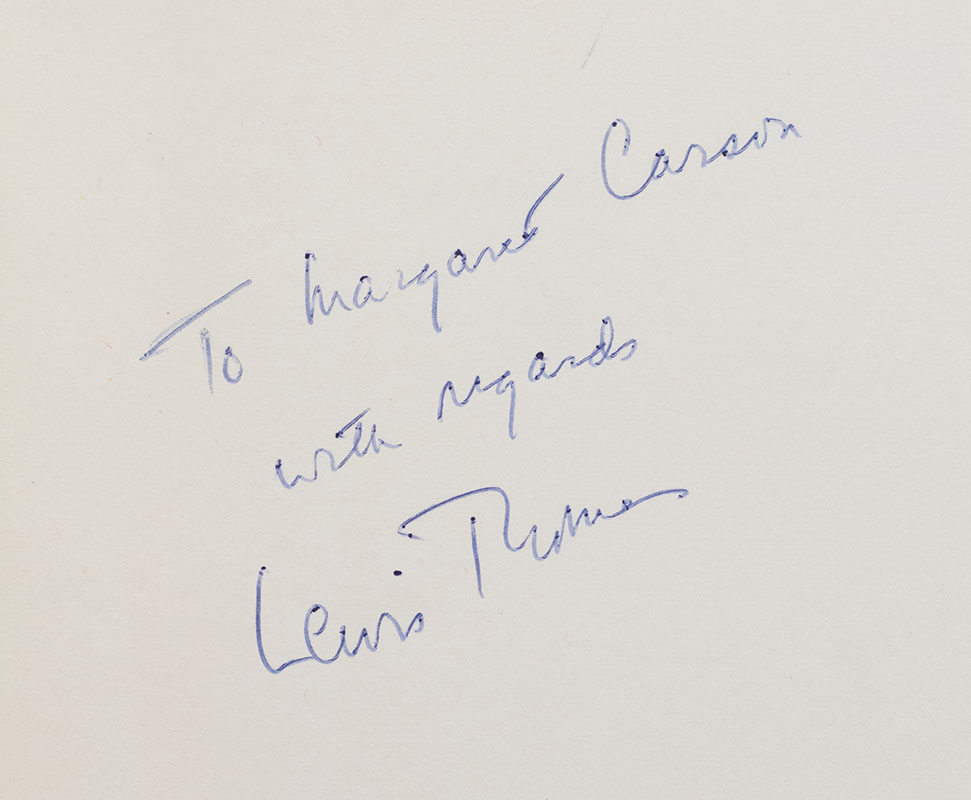 To Margaret Carson
with regards
Lewis Thomas